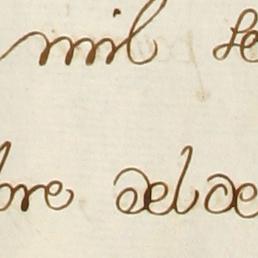 mil se
bre del de